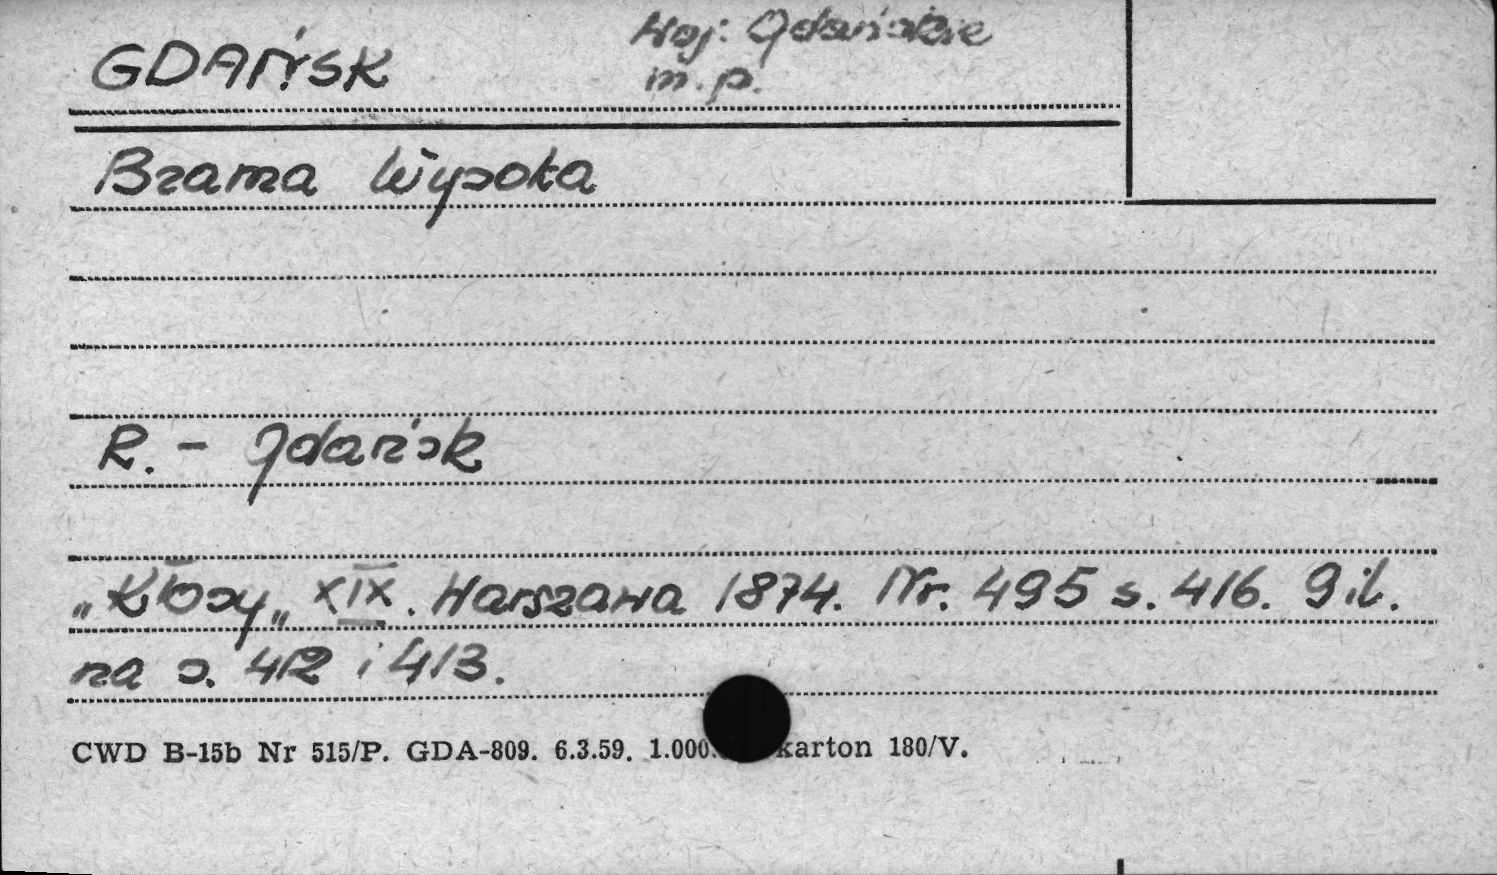 GDAŃSK
Woj: Gdańskie
m.p.
Brama Wysoka
R. - Gdańsk
„Kłosy„ XIX. Warszawa 1874. Nr. 495 s. 416. 9 il.
na s. 412 i 413.
CWD B-15b Nr 515/P. GDA-809. 6.3.59. 1.000. karton 180/V.